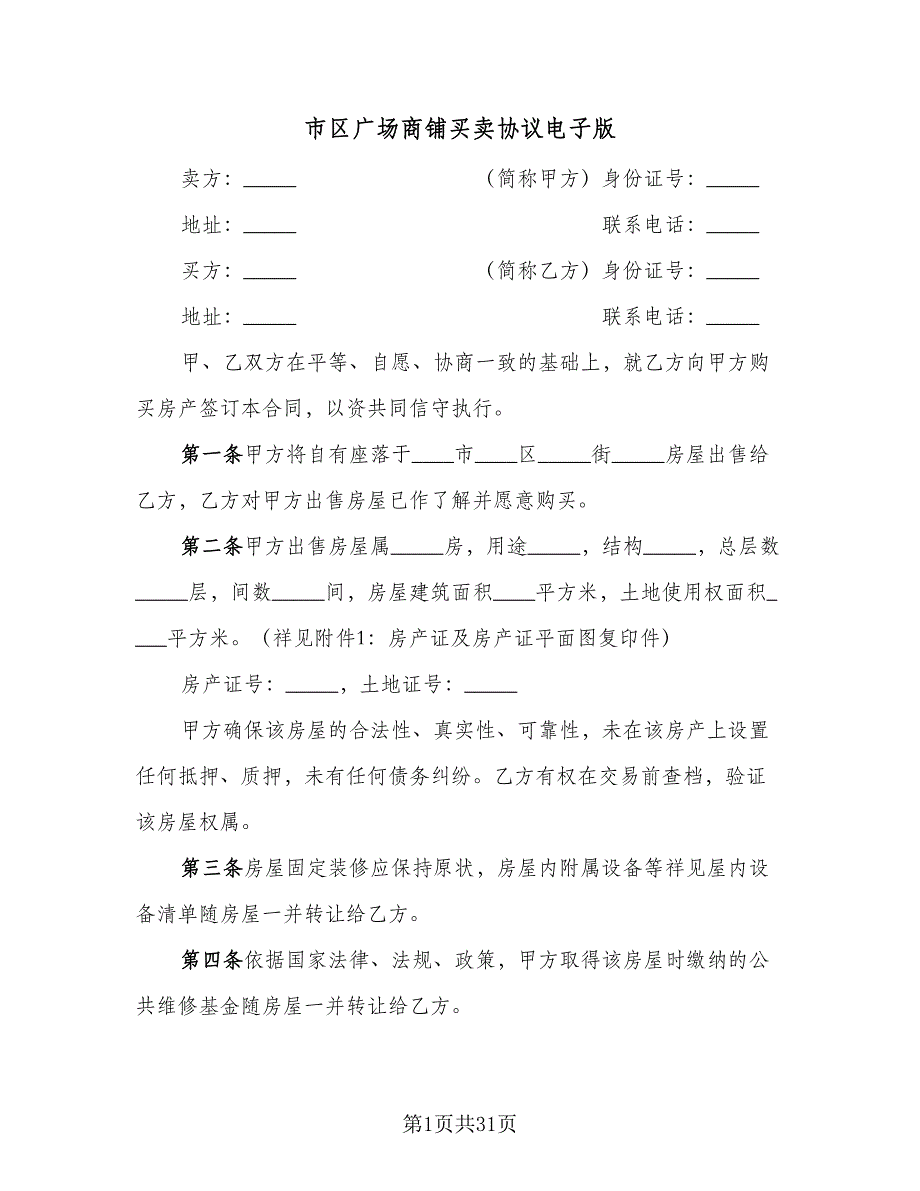 市区广场商铺买卖协议电子版
卖方：_____ （简称甲方）身份证号：_____
地址：_____ 联系电话：_____
买方：_____ （简称乙方）身份证号：_____
地址：_____ 联系电话：_____
甲、乙双方在平等、自愿、协商一致的基础上，就乙方向甲方购
买房产签订本合同，以资共同信守执行。
第一条甲方将自有座落于____市____区_____街_____房屋出售给
乙方，乙方对甲方出售房屋已作了解并愿意购买。
第二条甲方出售房屋属_____房，用途_____，结构_____，总层数
_____层，间数_____间，房屋建筑面积____平方米，土地使用权面积_
___平方米。（祥见附件1：房产证及房产证平面图复印件）
房产证号：_____，土地证号：_____
甲方确保该房屋的合法性、真实性、可靠性，未在该房产上设置
任何抵押、质押，未有任何债务纠纷。乙方有权在交易前查档，验证
该房屋权属。
第三条房屋固定装修应保持原状，房屋内附属设备等祥见屋内设
备清单随房屋一并转让给乙方。
第四条依据国家法律、法规、政策，甲方取得该房屋时缴纳的公
共维修基金随房屋一并转让给乙方。
第1页共31页